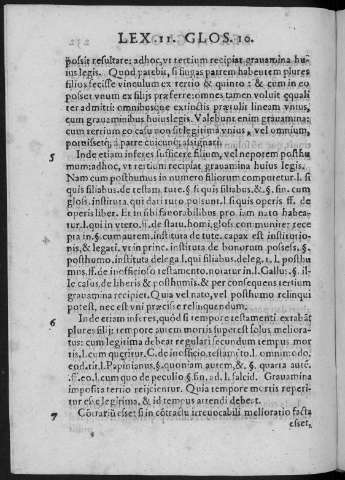 LEX .II. GLOS. 10.
possit resultare: adhoc, vt tertium recipiat grauamina huius
ius legis. Quod patebit, si fingas patrem habentem plures
filios fecisse vinculum ex tertio & quinto: & cum in eo
posset vnum ex filijs præferre: omnes tamen voluit equaliter
ter admitti: omnibusque extinctis prætulit lineam vnius,
cum grauaminibus huius legis. Valebunt enim grauamina:
cum tertium eo casu non sit legitima vnius, vel omnium,
portiisset, a patre cuicunq; assignari.
5 Inde etiam inferes sufficere filium, vel nepotem posthu
mum: adhoc, vt tertium recipiat grauamina huius legis.
Nam cum posthumus in numero filiorum computetur. l. si
quis filiabus. de testam. tute. §. si quis filiabus. &. §. fin. cum
glos. instituta. qui dari tuto. possunt. l. si quis operis ff. de
operis liber. Et in sibi fauorabilibus pro iam nato habea-
tur. l. qui in vtero. ff. de statu. homi. glos. communiter rece
pta in. §. cum autem. instituta de tute. capax est institutio-
nis, & legati. vt in princ. instituta de bonorum posses. §.
posthumo. instituta de lega. l. qui filiabus. deleg. 1. l. posthu
mus. ff. de inofficioso testamento. notatur in. l. Gallus. §. il-
le casus, de liberis & posthumis. & per consequens tertium
grauamina recipiet. Quia vel nato, vel posthumo relinqui
potest, nec est vni præcise relinquendum.
6 Inde etiam inferes, quod si tempore testamenti extabāt
plures filij: tempore autem mortis superest solus meliora-
tus: cum legitima debeat regulari secundum tempus mor
tis. l. cum queritur. C. de inofficio. testamēto. l. omnimodo.
eod. tit. l. Papinianus. §. quoniam autem, &. §. quarta autē.
ff. eo. l. cum quo de peculio §. fin. ad. l. falcid. Grauamina
imposita tertio reijcientur. Quia tempore mortis reperi-
tur esse legitima, & id tempus attendi debet.
7 Cōtrariū esset si in cōtractu irreuocabili melioratio facta
esset,